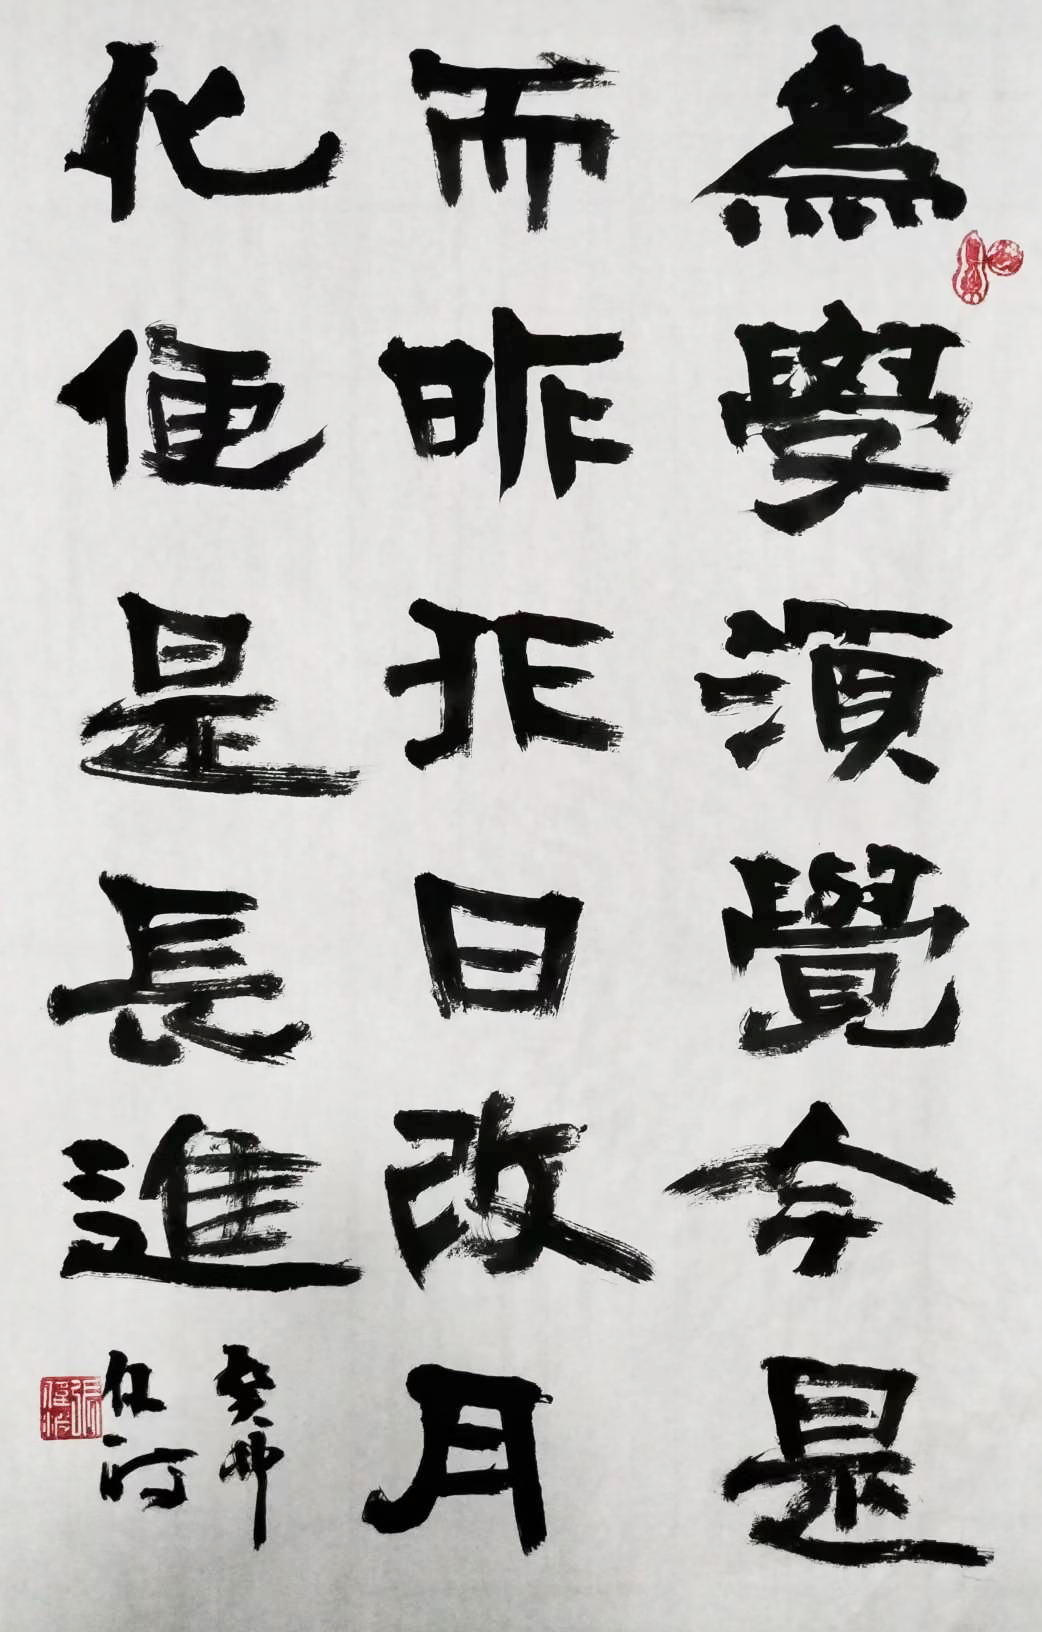 為學須覺今是
而昨非日改月
化便是長進
癸卯